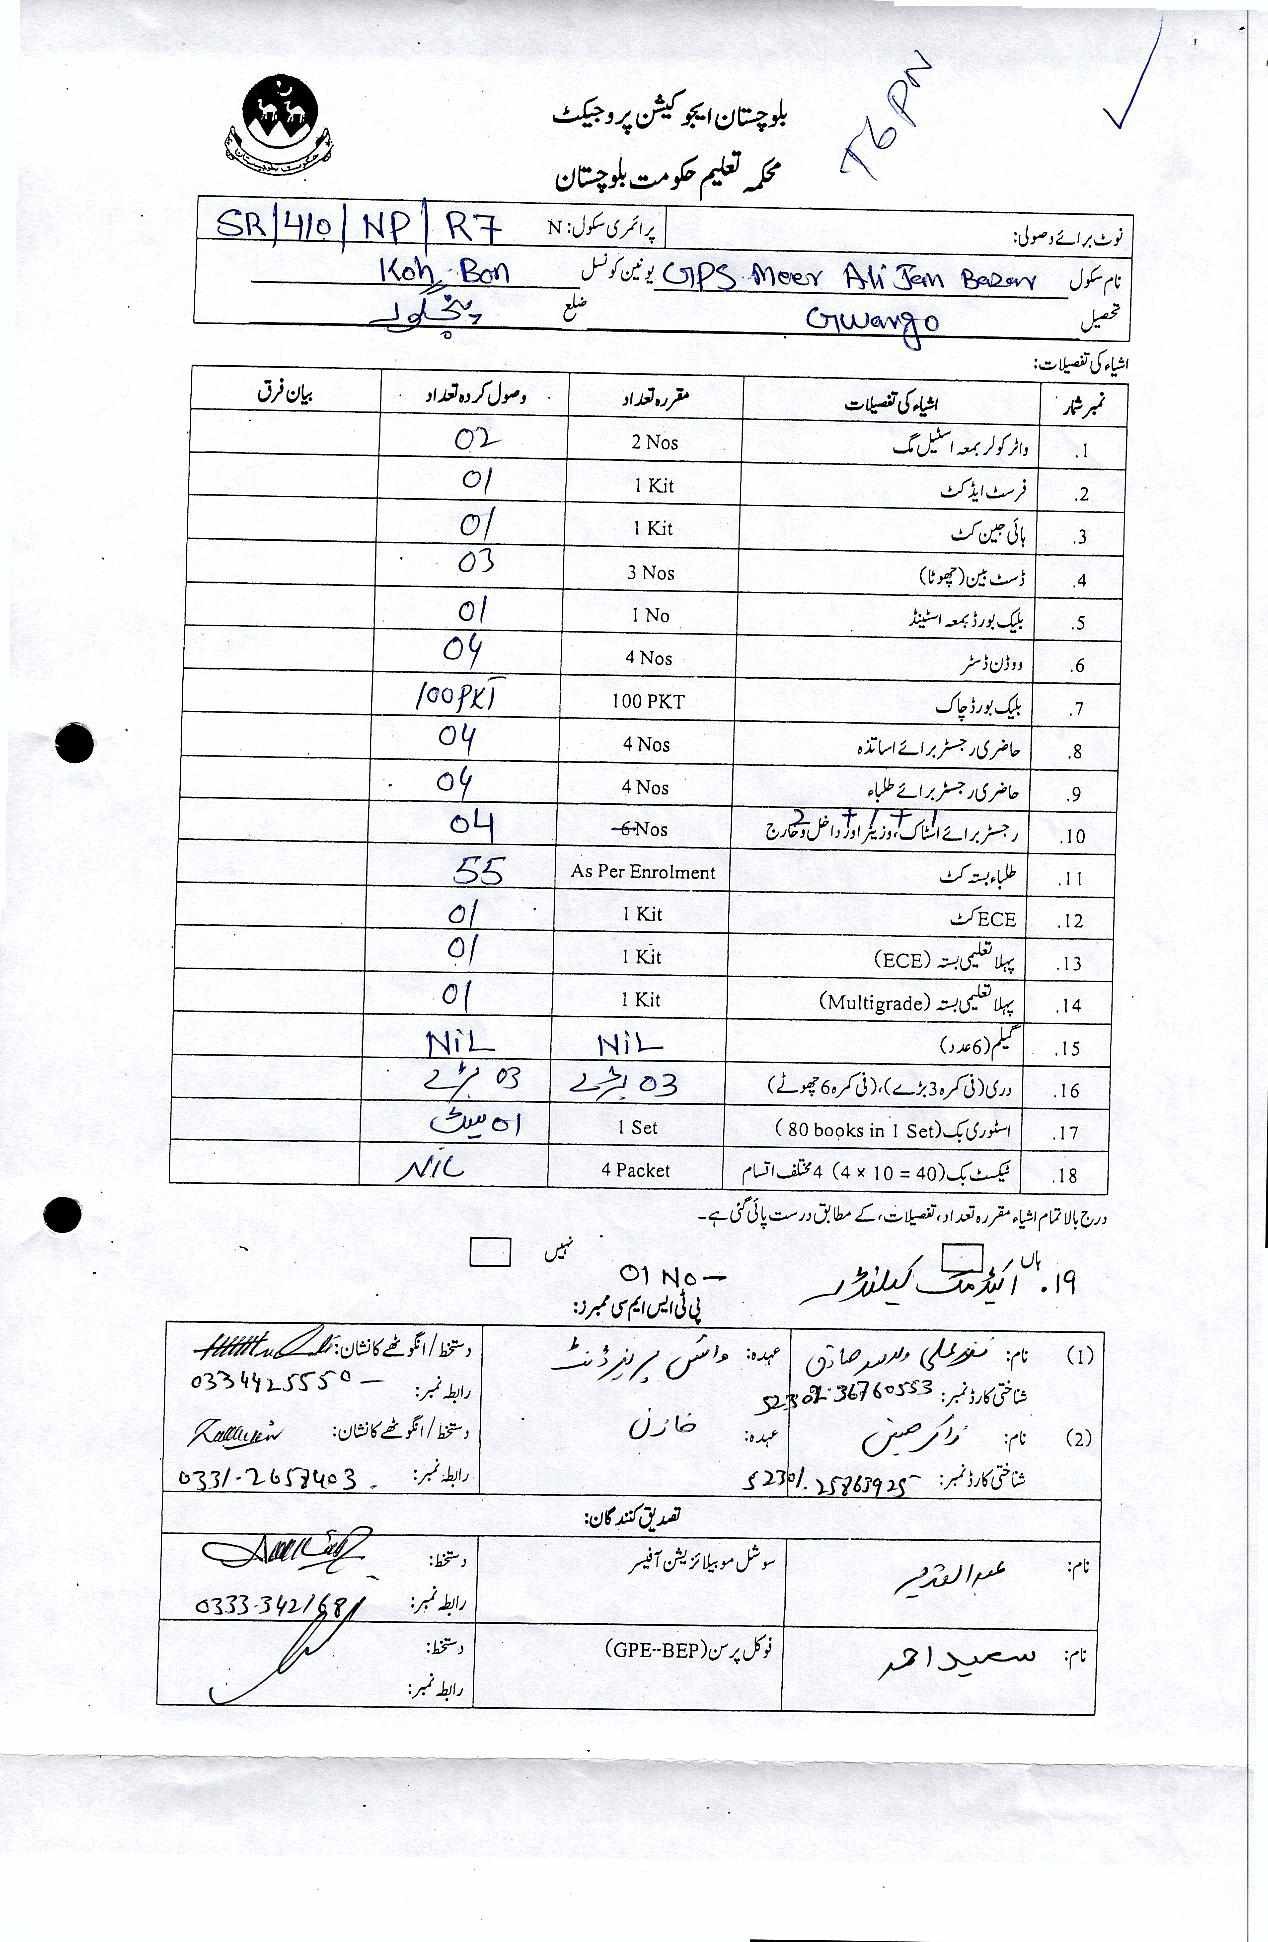 T6PN
بلوچستان ایجوکیشن پروجیکٹ
محکمہ تعلیم حکومت بلوچستان
حکومت بلوچستان
نوٹ برائے وصولی: پرائمری سکول: N SR/410/NP/R7
نام سکول GPS Meer Ali Jan Bazar یونین کونسل Koh-Bon
تحصیل Gwargo ضلع پنجگور
اشیاء کی تفصیلات:
نمبر شمار اشیاء کی تفصیلات مقررہ تعداد وصول کردہ تعداد بیان فرق
1. واٹر کولر بمعہ اسٹیل مگ 2 Nos 02
2. فرسٹ ایڈ کٹ 1 Kit 01
3. ہائی جین کٹ 1 Kit 01
4. ڈسٹ بین (چھوٹا) 3 Nos 03
5. بلیک بورڈ بمعہ اسٹینڈ 1 No 01
6. ووڈن ڈسٹر 4 Nos 04
7. بلیک بورڈ چاک 100 PKT 100 PKT
8. حاضری رجسٹر برائے اساتذہ 4 Nos 04
9. حاضری رجسٹر برائے طلباء 4 Nos 04
10. رجسٹر برائے اسٹاک، وزیٹر اور داخل و خارج 1 + 1 + 2 6 Nos 04
11. طلباء بستہ کٹ As Per Enrolment 55
12. ECE کٹ 1 Kit 01
13. پہلا تعلیمی بستہ (ECE) 1 Kit 01
14. پہلا تعلیمی بستہ (Multigrade) 1 Kit 01
15. گلیم (6 عدد) NIL NIL
16. دری (فی کمرہ 3 بڑے)، (فی کمرہ 6 چھوٹے) 03 بڑے 03 بڑے
17. اسٹوری بک (80 books in 1 Set) 1 Set 01 سیٹ
18. ٹیکسٹ بک (4 × 10 = 40) 4 مختلف اقسام 4 Packet NIL
درج بالا تمام اشیاء مقررہ تعداد، تفصیلات، کے مطابق درست پائی گئی ہے۔
ہاں نہیں
۱۹. اکیڈمک کیلنڈر 01 No
پی ٹی ایس ایم سی ممبرز:
(1) نام: عہدہ: وائس پریزیڈنٹ دستخط/انگوٹھے کا نشان:
شناختی کارڈ نمبر: رابطہ نمبر: 0334425550
(2) نام: ذاکر حسین عہدہ: خازن دستخط/انگوٹھے کا نشان:
شناختی کارڈ نمبر: رابطہ نمبر: 0331-2657403
تصدیق کنندگان:
نام: عبدالقدیر سوشل موبیلائزیشن آفیسر دستخط:
رابطہ نمبر: 0333-3421681
نام: سعید احمد فوکل پرسن (GPE-BEP) دستخط:
رابطہ نمبر: